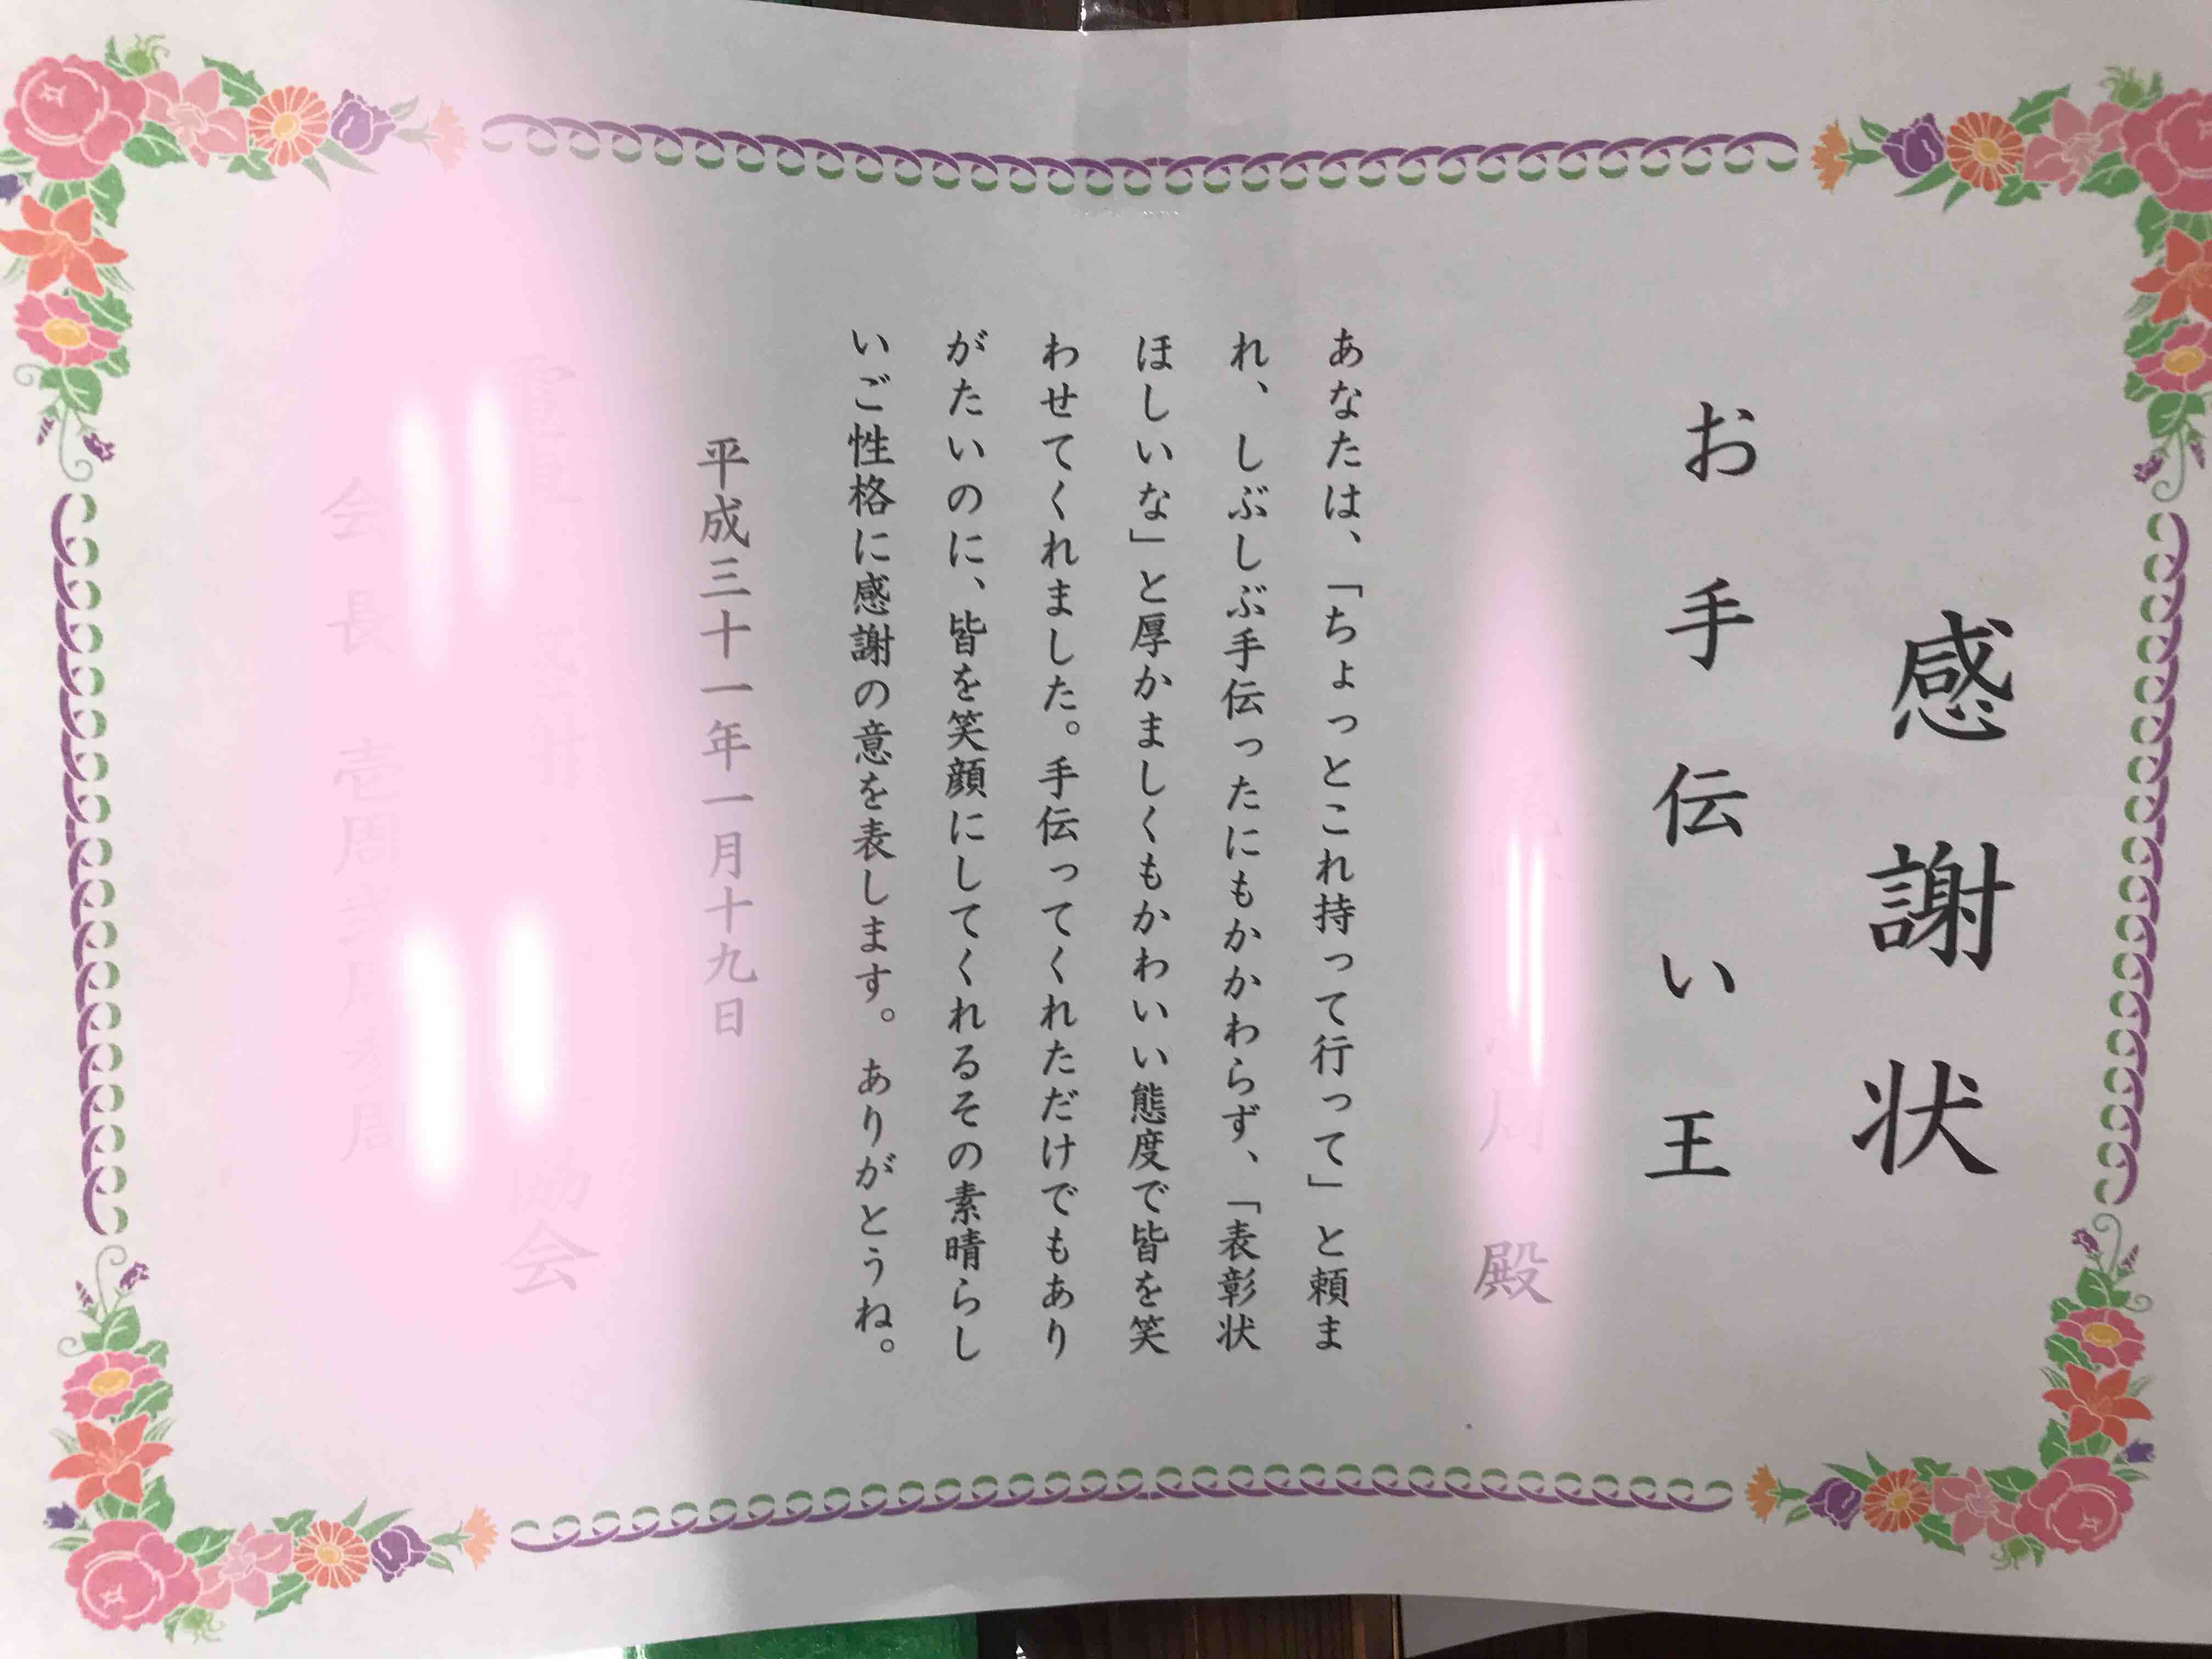 感謝状
お手伝い王
殿
あなたは、「ちょっとこれ持って行って」と頼ま
れ、しぶしぶ手伝ったにもかかわらず、「表彰状
ほしいな」と厚かましくもかわいい態度で皆を笑
わせてくれました。手伝ってくれただけでもあり
がたいのに、皆を笑顔にしてくれるその素晴らし
いご性格に感謝の意を表します。ありがとうね。
平成三十一年一月十九日
協会
会長 壱周弐周参周